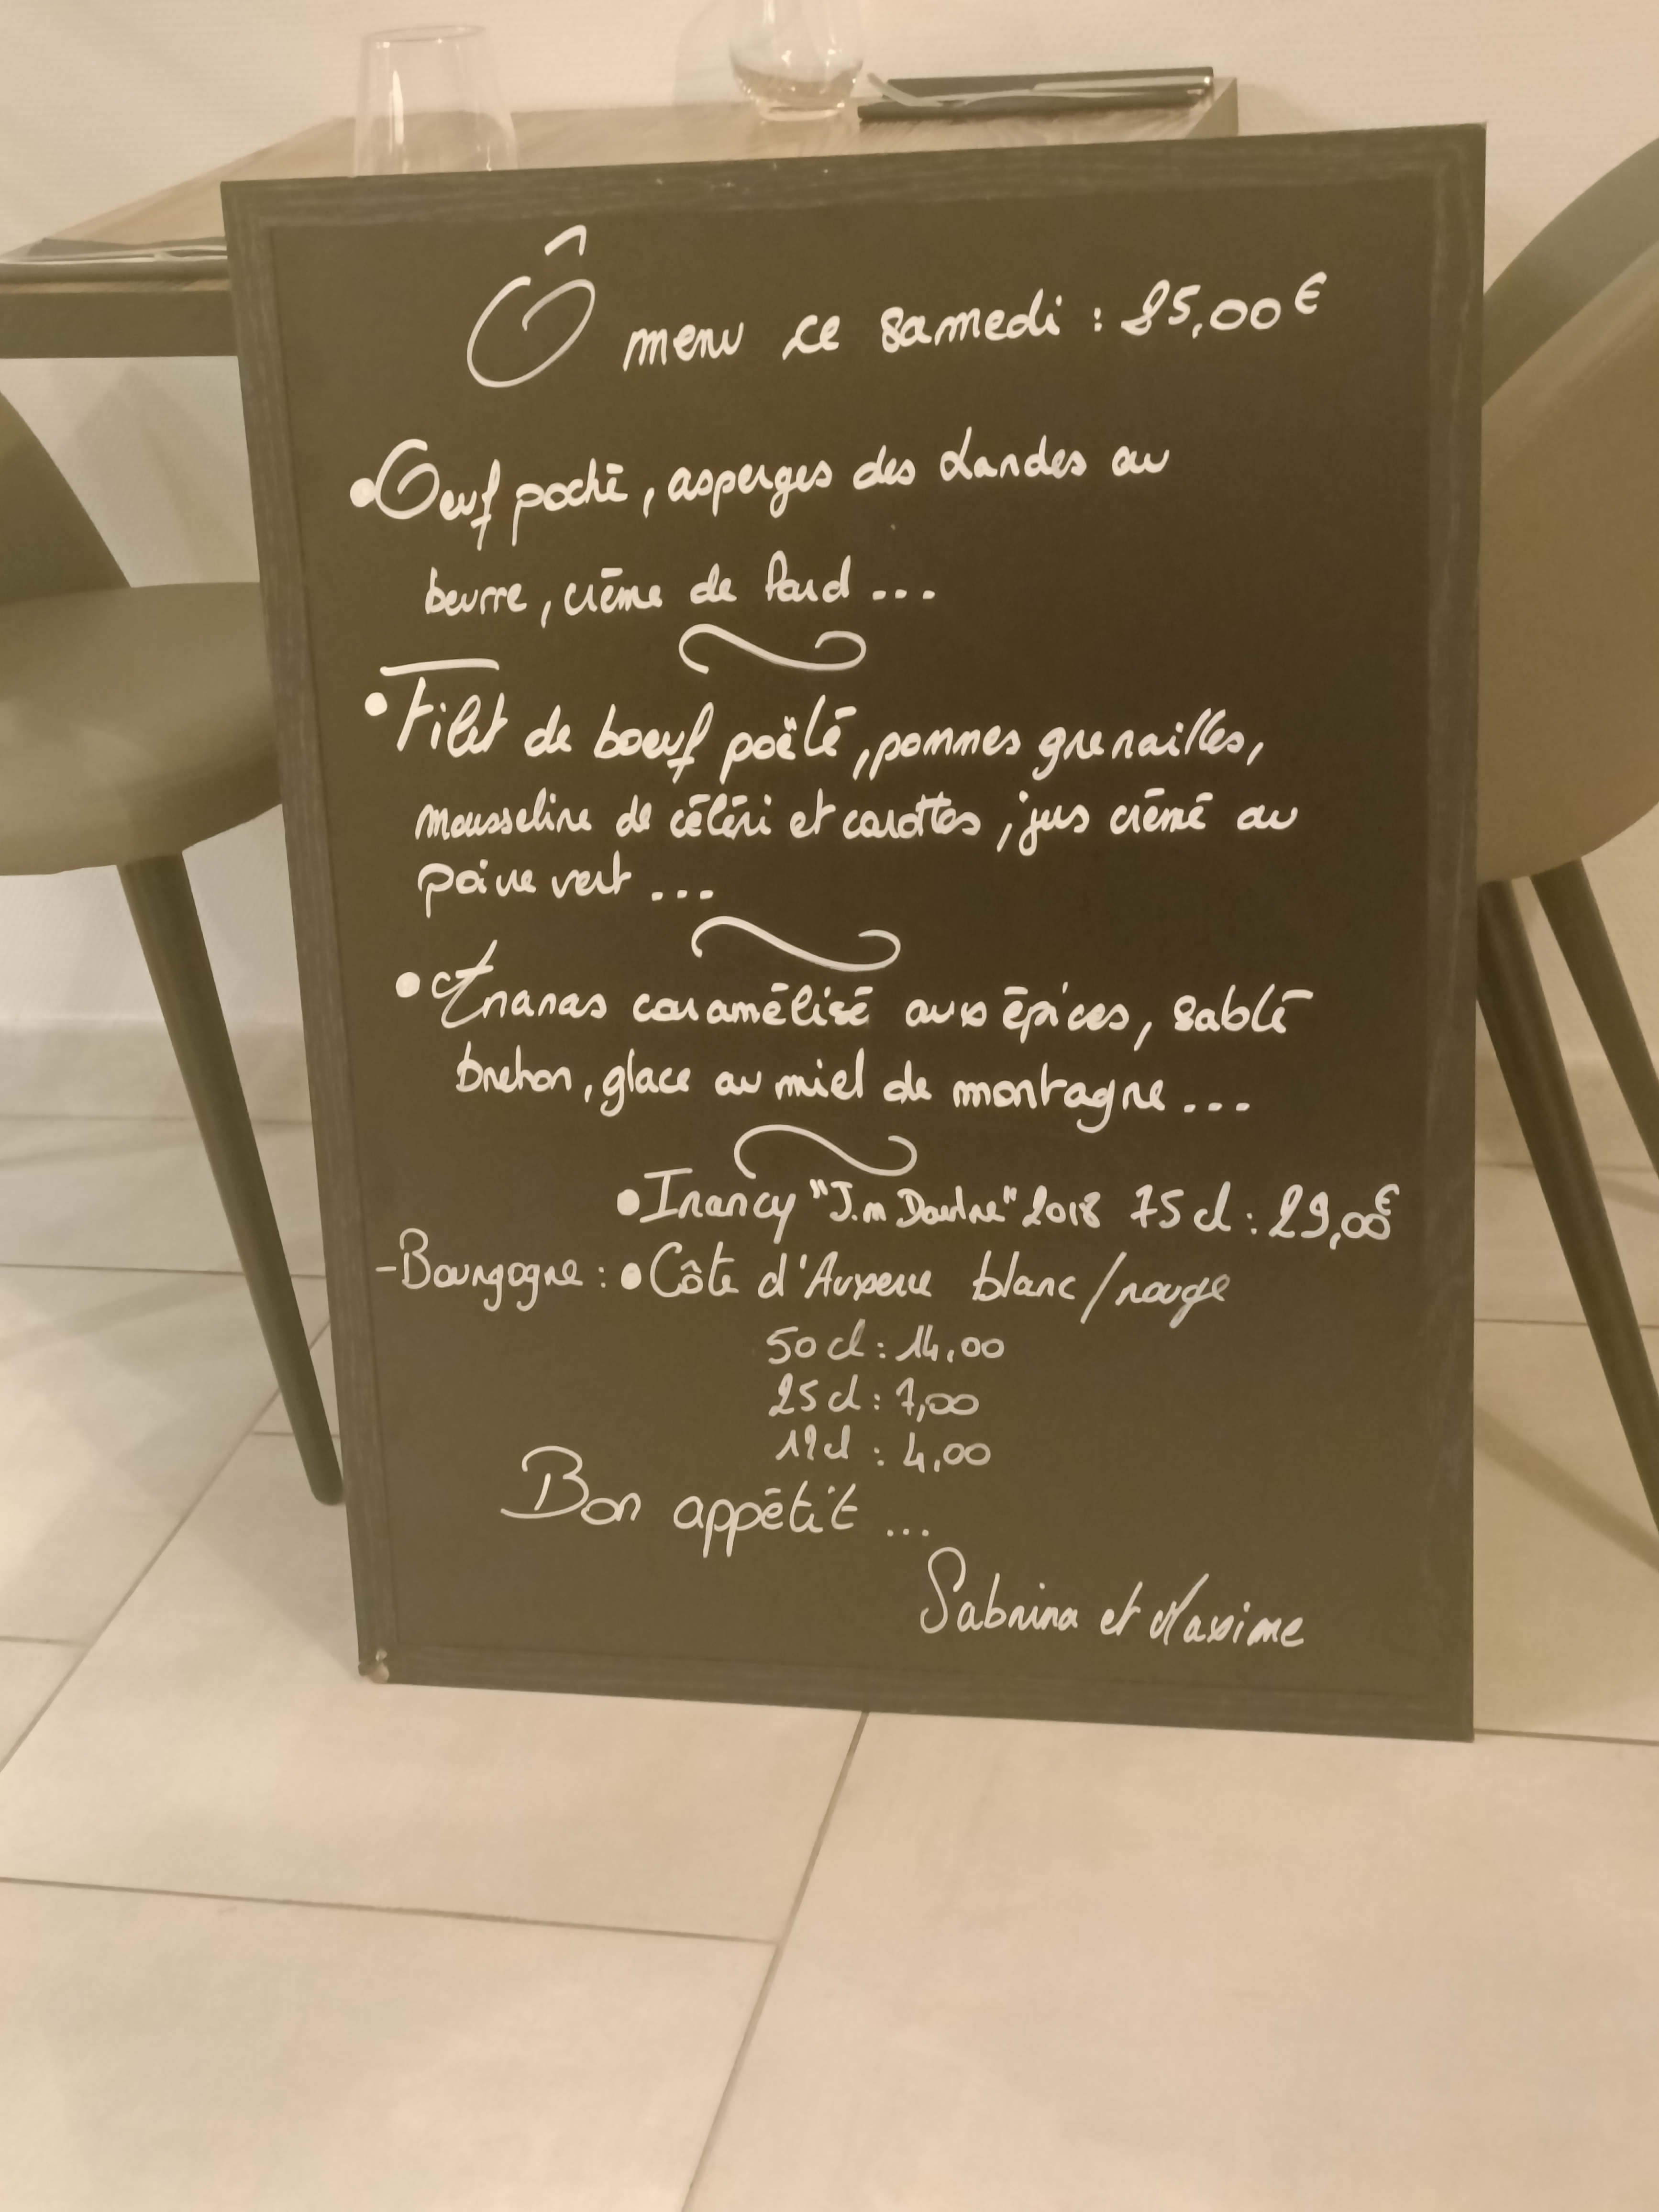 Ô menu ce samedi : 25,00€
• Oeuf poché, asperges des Landes au
beurre, crème de lard ...
• Filet de boeuf poëlé, pommes grenailles,
mousseline de céléri et carottes, jus crémé au
poivre vert ...
• Ananas caramélisé aux épices, sablé
breton, glace au miel de montagne ...
• Irancy "J.m Daulne" 2018 75cl : 29,00€
- Bourgogne : • Côte d'Auxerre blanc/rouge
50cl : 14,00
25cl : 7,00
12cl : 4,00
Bon appétit ...
Sabrina et Maxime